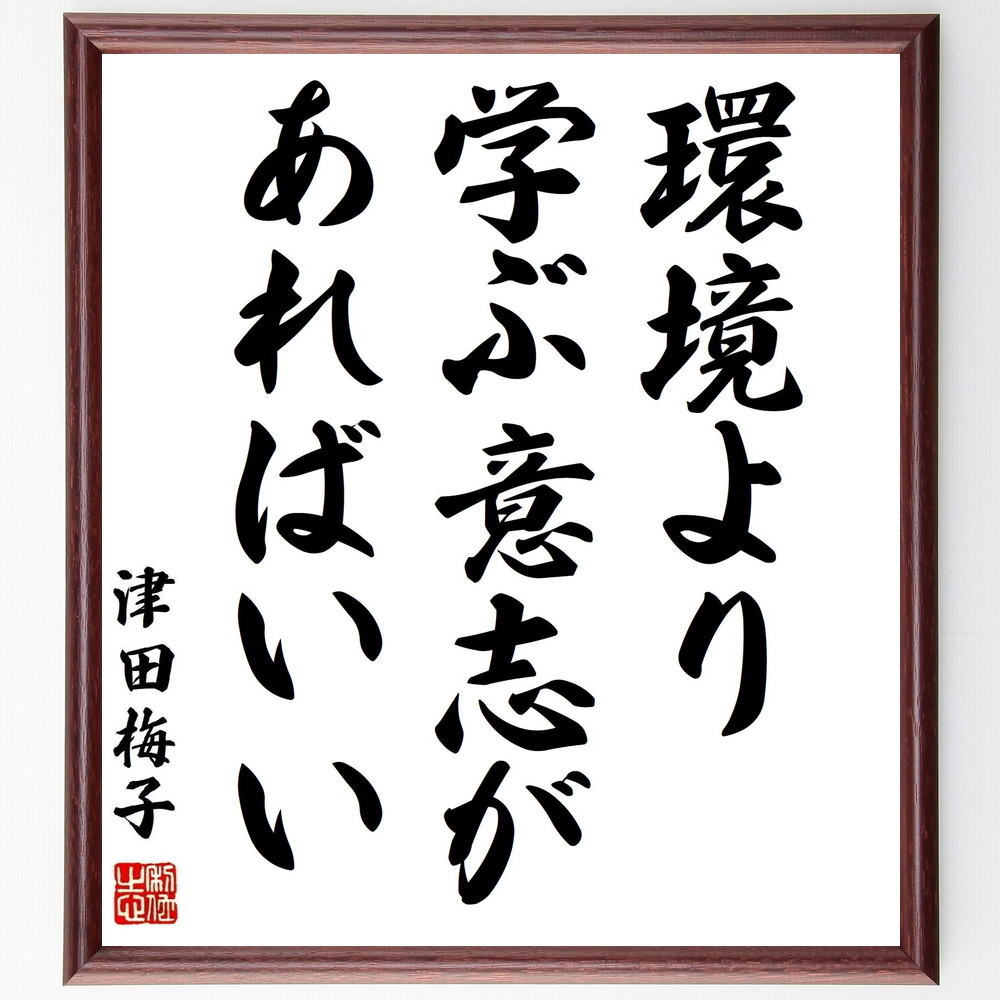 環境より
学ぶ意志が
あればいい
津田梅子